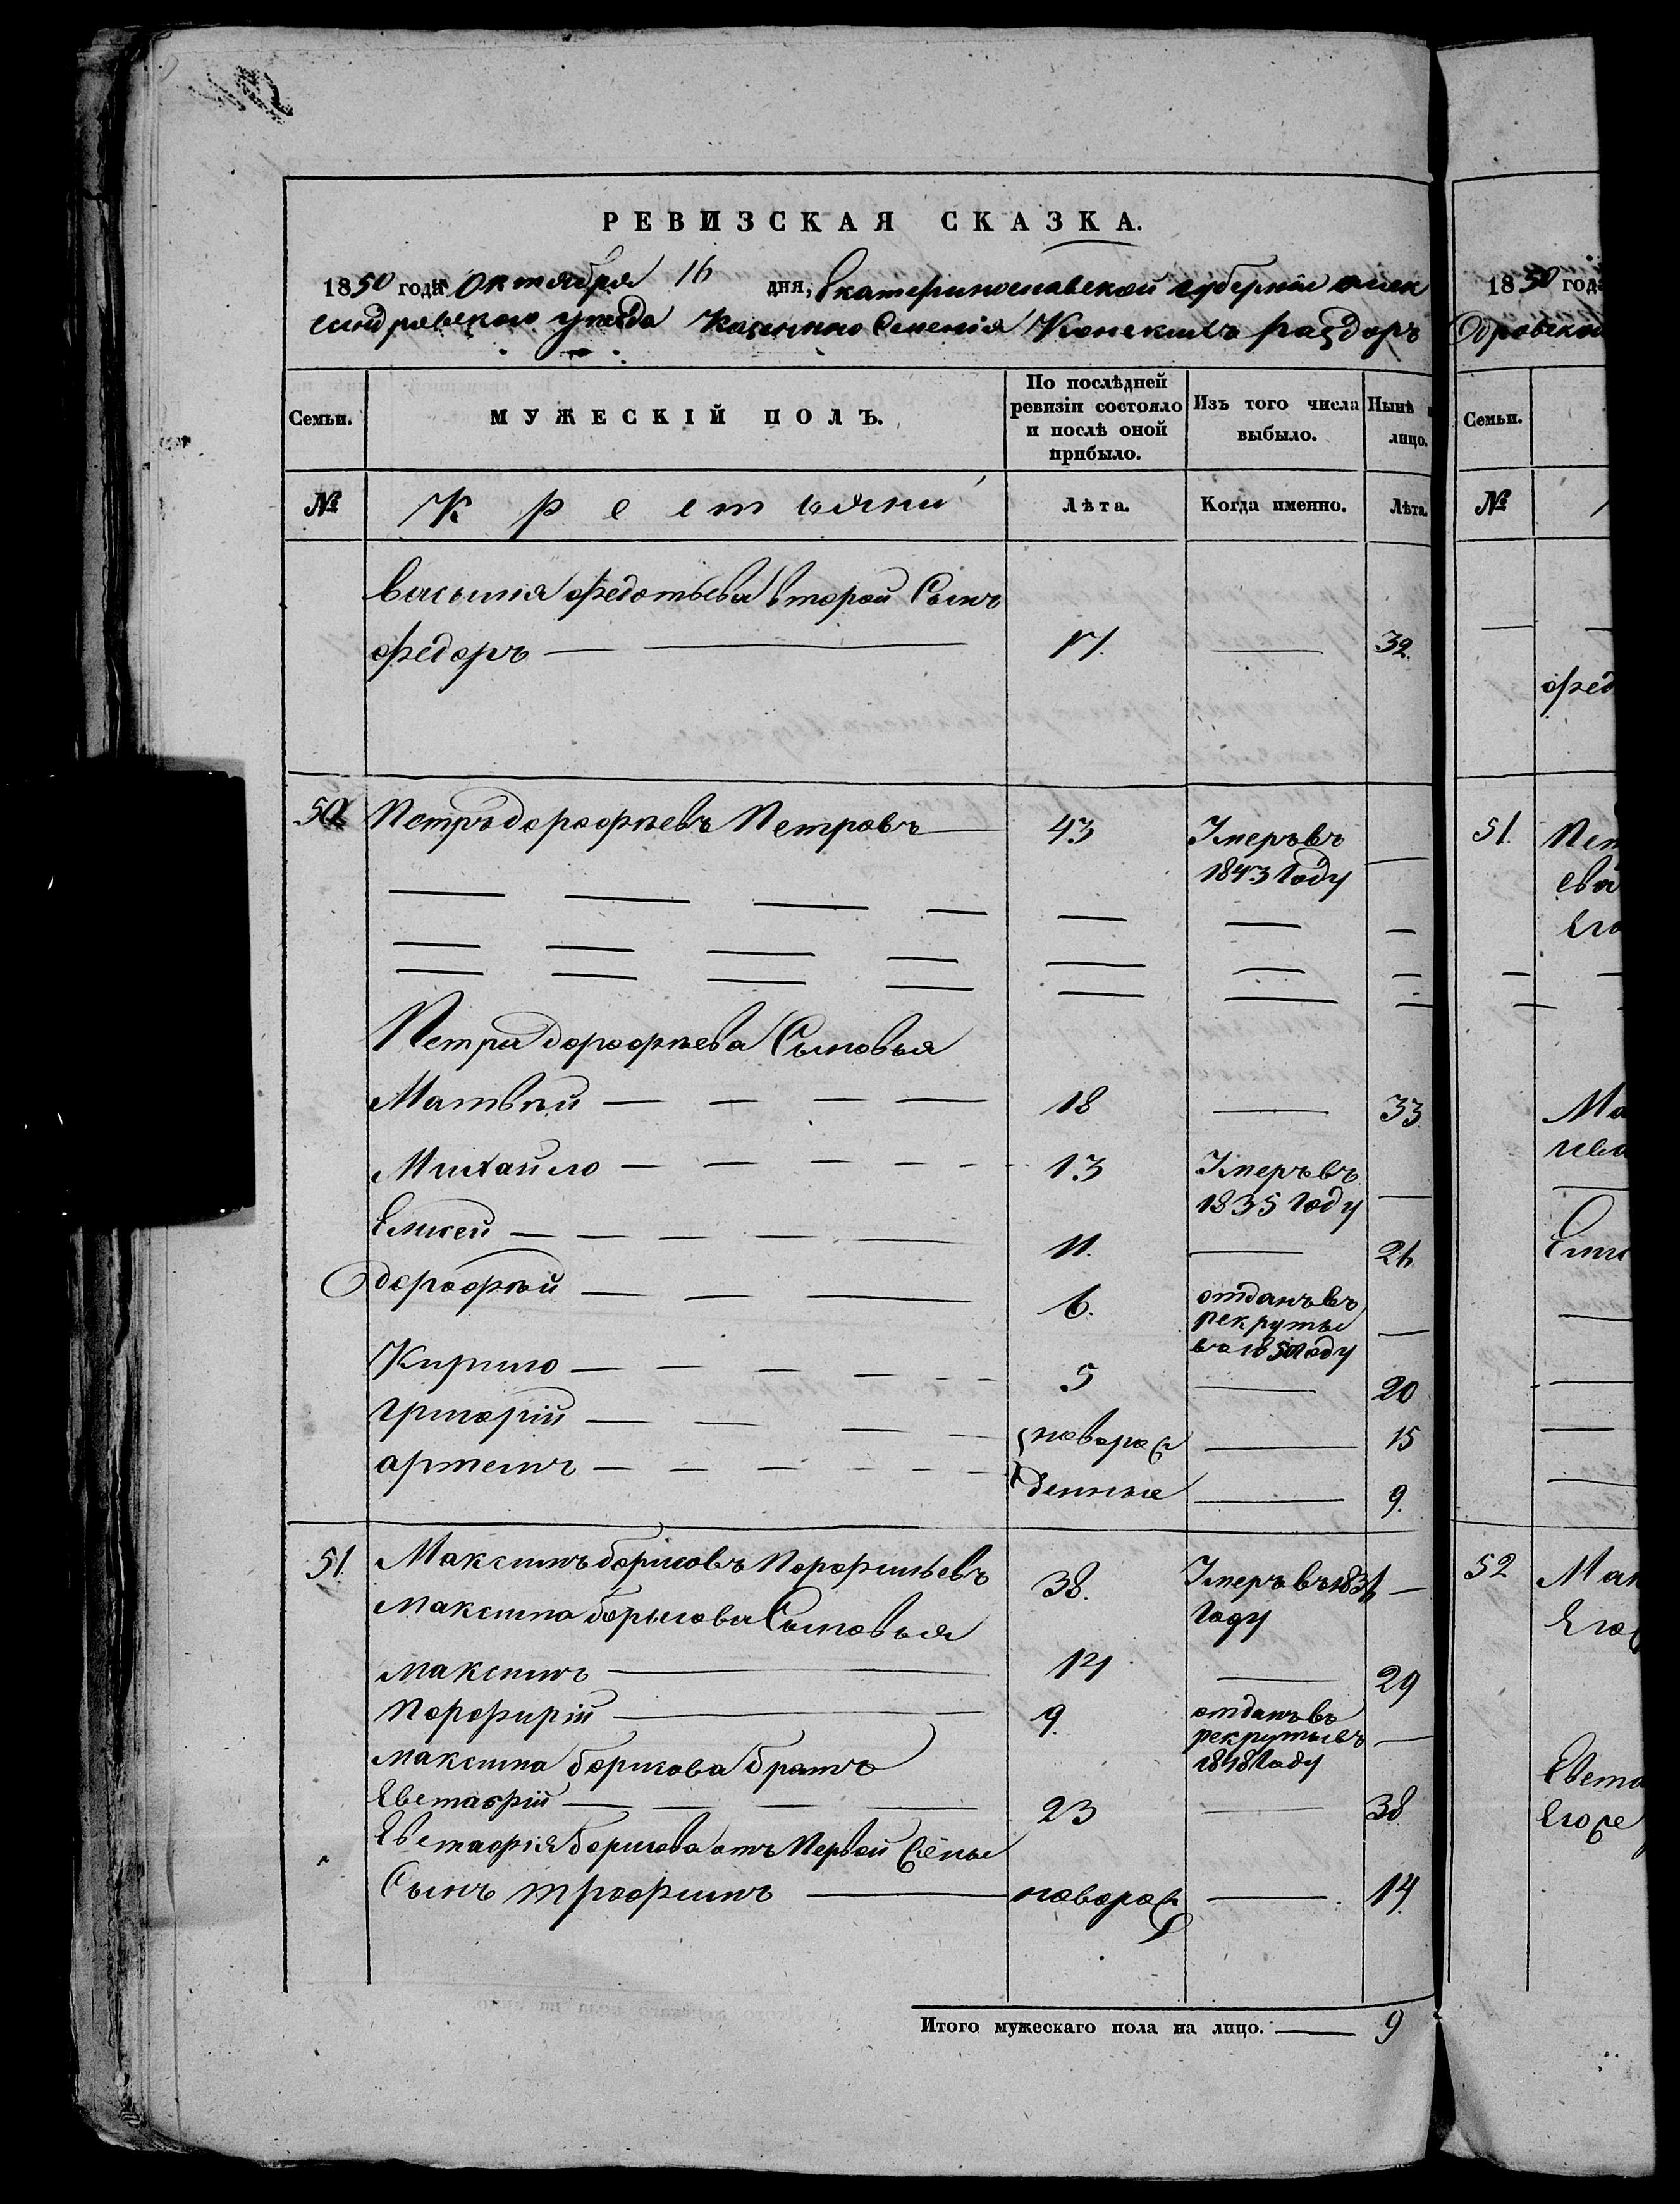 РЕВИЗСКАЯ СКАЗКА.
1850 года Октября 16 дня, Екатеринославской губерніи алек
сандровскаго уезда Казенного Селенія Конскихъ раздоръ
Семьи. МУЖЕСКІЙ ПОЛЪ. По послѣдней ревизіи состояло и послѣ оной прибыло. Изъ того числа выбыло. Нынѣ лицо.
№ Крестьяни Лѣта. Когда именно. Лѣта.
василия федотьева второй Сынъ
федоръ 17. 32.
50 Петръ дорофѣевъ Петровъ 43 Умеръ въ
1843 Году
Петра дорофѣева Сыновья
Матвѣй 18 33.
Михайло 13 Умеръ въ
1835 Году
Елисей 11. 26
дорофѣй 6. отданъ въ
рекруты
въ 1850 Году
Кирило 5 20
григорій новорож 15
артемъ денные 9.
51. Максимъ борисовъ Порфильевъ 38. Умеръ въ 1836
Году
Максима борысова Сыновья
максимъ 14. 29
Порфирій 9. отданъ въ
рекруты въ
1848 Году
максима борисова братъ
Евстафій 23 38.
Евстафія борисова отъ Первой Жены
Сынъ трофимъ новорож 14.
Итого мужескаго пола на лицо. 9
1850 год
дровской
Семьи.
№
фед
51. Пет
Ма
Ели
52 Мак
Евста